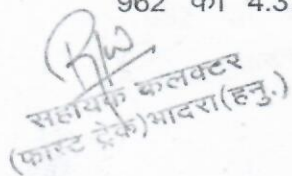 962 का 4.3
सहायक कलक्टर
(फास्ट ट्रेक) भादरा (हनु.)